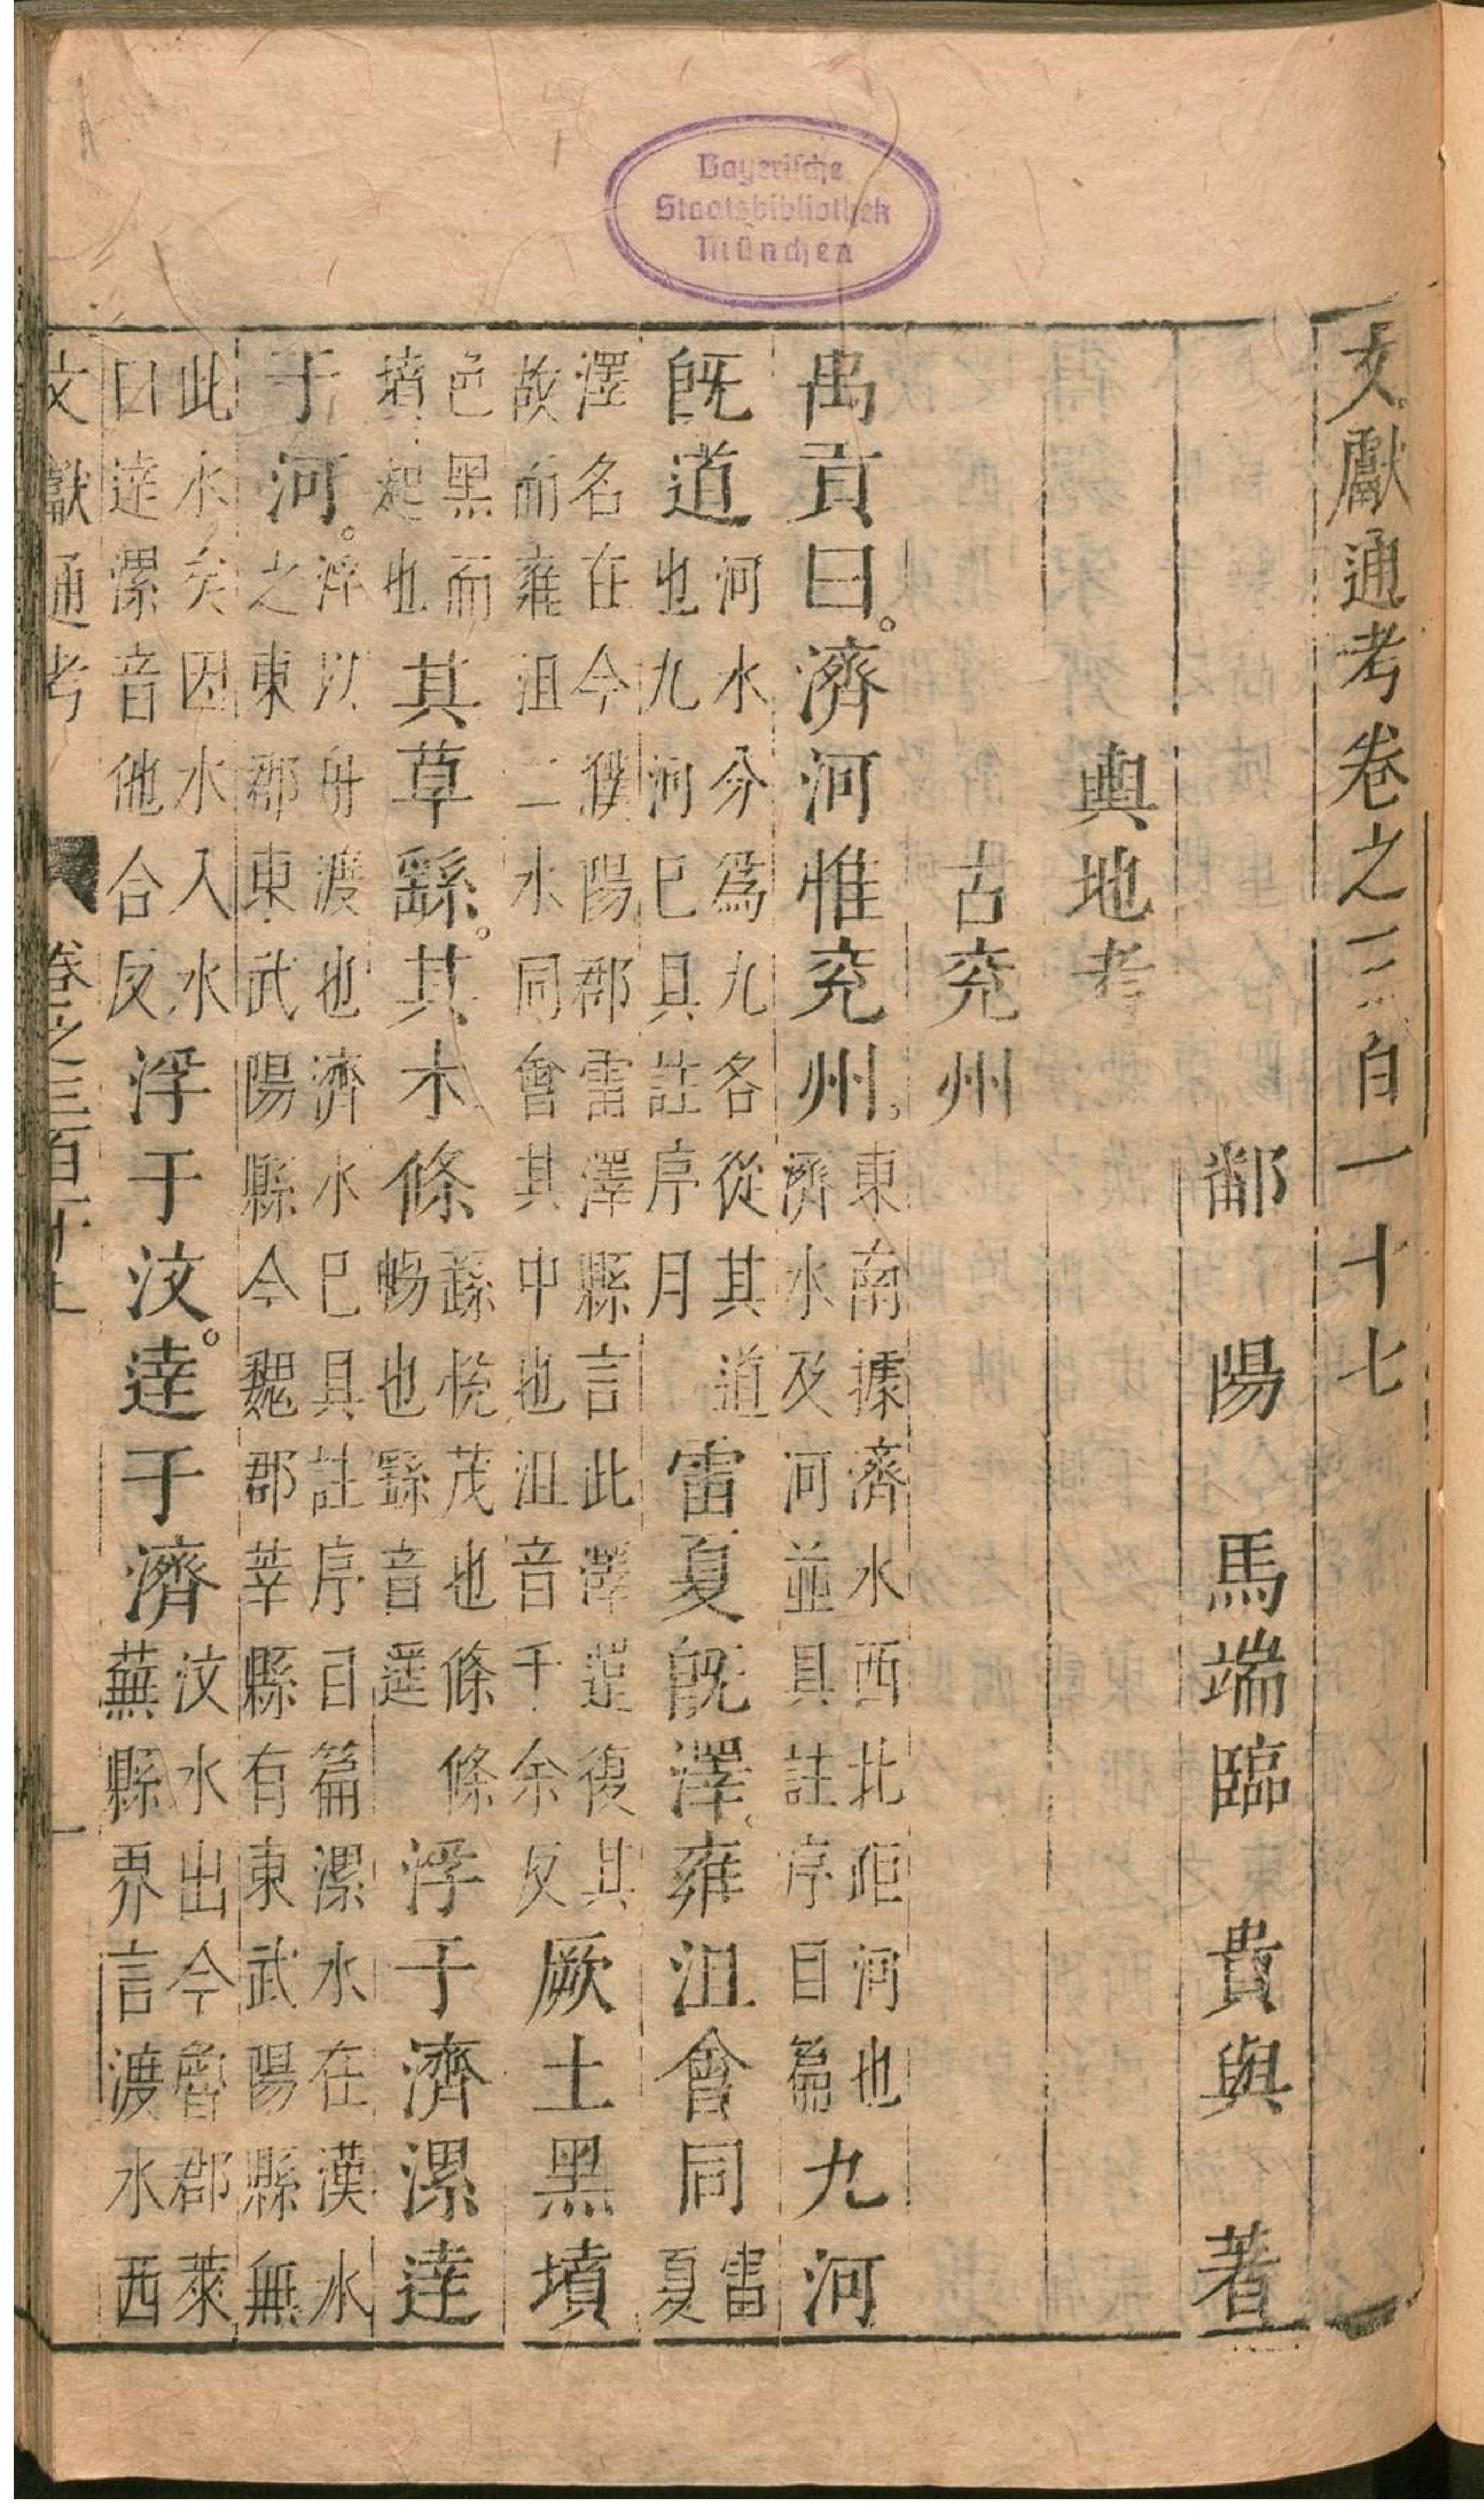 文獻通考卷之三百一十七
鄱陽馬端臨貴與著
輿地考
古兖州
禹貢曰。濟河惟兖州。東南據濟水西北距河也濟水及河並具註序目篇九河
旣道河水分爲九各從其道也九河已具註序月雷夏旣澤雍沮會同雷夏
澤名在今濮陽郡雷澤縣言此澤還復其故而雍沮二水同會其中也沮音千余反厥土黑墳
色黑而墳起也其草繇。其木條繇悅茂也條條暢也繇音遥浮于濟漯達
于河。浮以舟渡也濟水已具註序目篇漯水在漢水之東郡東武陽縣今魏郡莘縣有東武陽縣無
此水矣因水入水曰達漯音他合反浮于汶。達于濟汶水出今魯郡萊蕪縣界言渡水西
文獻通考 卷之三百十七 一
Bayerische
Staatsbibliothek
München